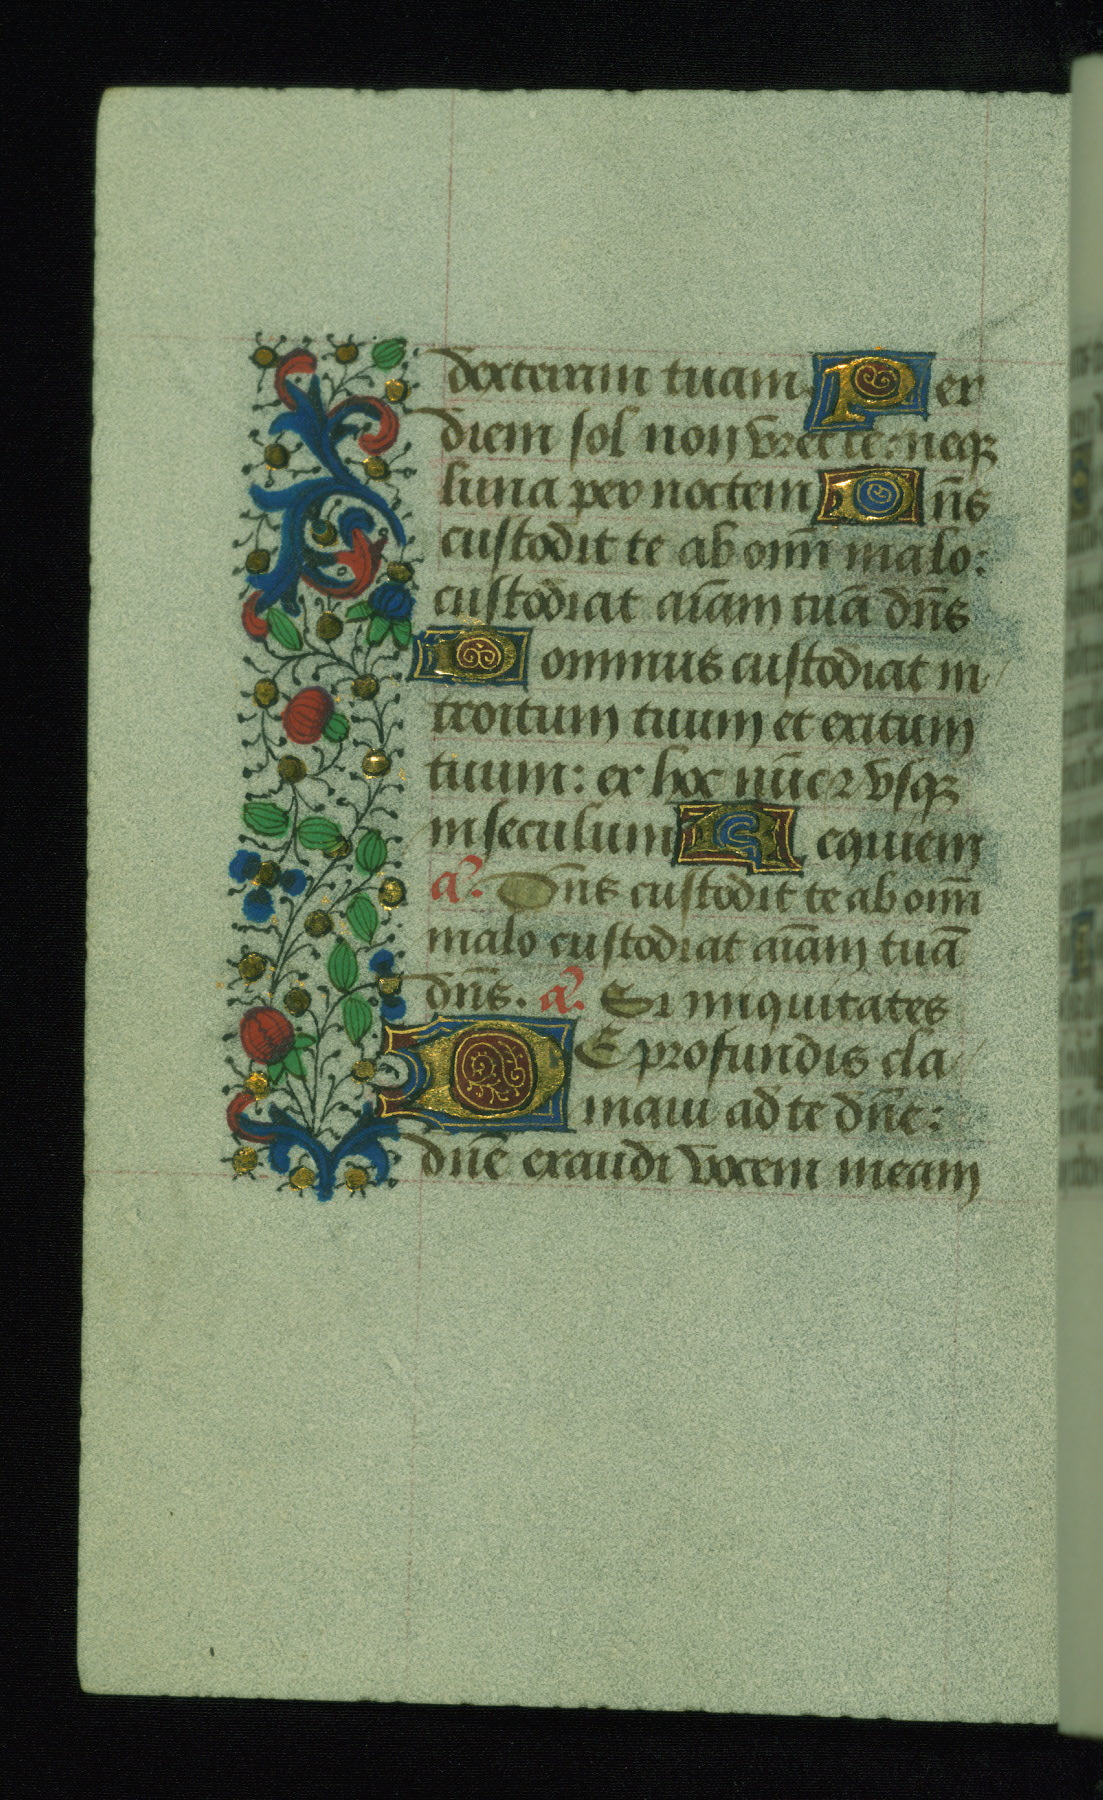 dexteram tuam Per
diem sol non vret te: neqꝫ
luna per noctem Dn̄s
custodit te ab om̄i malo:
custodiat aīam tuā dn̄s
Dominus custodiat in
troitum tuum et exitum
tuum: ex hoc nūc ⁊ vsqꝫ
in seculum Requiem
a᷒. Dn̄s custodit te ab om̄i
malo custodiat aīam tuā
dn̄s. a᷒. Si iniquitates
DE profundis cla
maui ad te dn̄e:
dn̄e exaudi vocem meam